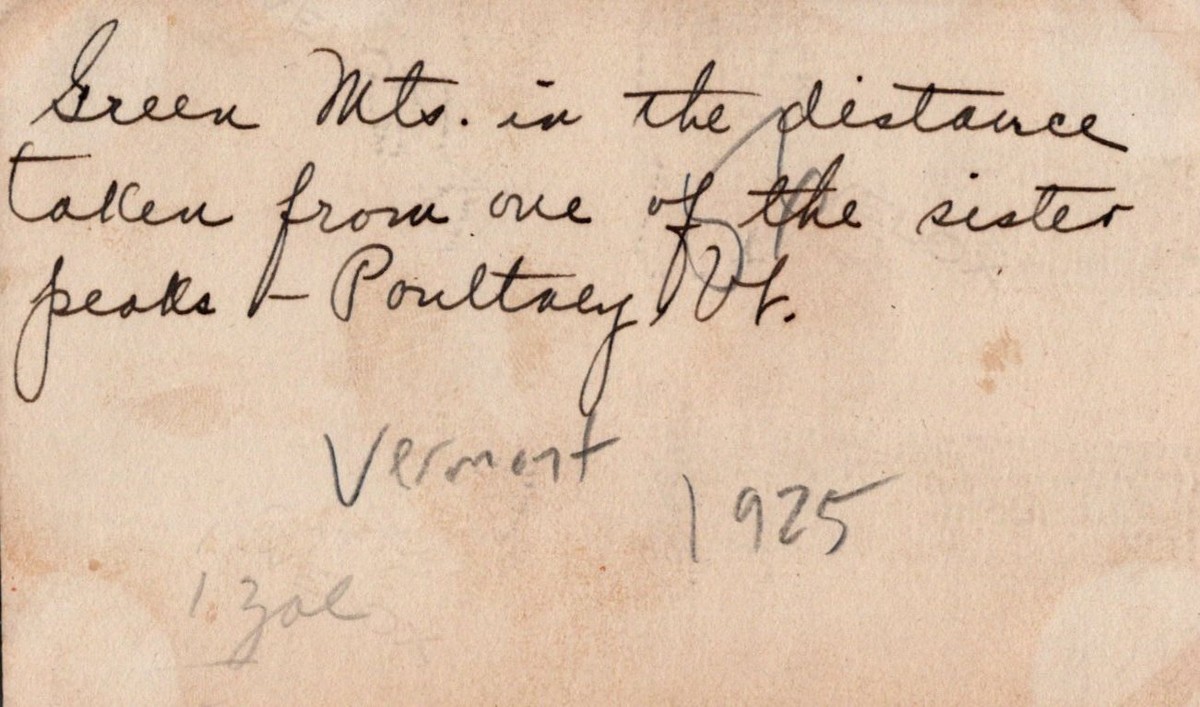 Green Mts. in the distance
taken from one of the sister
peaks - Poultney, Vt.
Vermont
1925